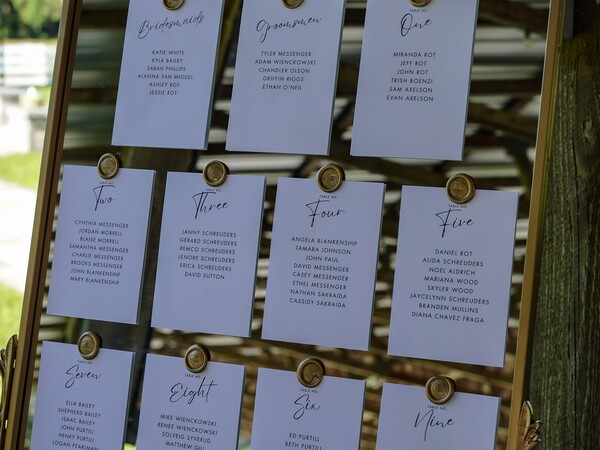 Bridesmaids
KATIE WHITE
KYLA BAILEY
SARAH PHILLIPS
ALANNA SAN MIGUEL
ASHLEY ROT
JESSIE ROT
Groomsmen
TYLER MESSENGER
ADAM WIENCKOWSKI
CHANDLER OLSON
GRIFFIN RIGGS
ETHAN O'NEIL
TABLE NO.
One
MIRANDA ROT
JEFF ROT
JOHN ROT
TRISH BOENZI
SAM ARELSON
EVAN ARELSON
TABLE NO.
Two
CYNTHIA MESSENGER
JORDAN MORRELL
BLAISE MORELL
SAMANTHA MESSENGER
CHARLIE MESSENGER
BROOKS MESSENGER
JOHN BLANKENSHIP
MARY BLANKENSHIP
TABLE NO.
Three
JANNY SCHREUDERS
GERARD SCHREUDERS
REMCO SCHREUDERS
LENORE SCHREUDERS
ERICA SCHREUDERS
DAVID SUTTON
TABLE NO.
Four
ANGELA BLANKENSHIP
TAMARA JOHNSON
JOHN PAUL
DAVID MESSENGER
CASEY MESSENGER
ETHEL MESSENGER
NATHAN SAKRAIDA
CASSIDY SAKRAIDA
TABLE NO.
Five
DANIEL ROT
ALIDA SCHREUDERS
NOEL ALDRICH
MARIANA WOOD
SKYLER WOOD
JAYCELYNN SCHREUDERS
BRANDEN MULLINS
DIANA CHAVEZ FRAGA
TABLE NO.
Seven
ELLA BAILEY
SHEPHERD BAILEY
ISAAC BAILEY
JOHN PURTILL
HENRY PURTILL
LOGAN PEARLMAN
TABLE NO.
Eight
MIKE WIENCKOWSKI
RENEE WIENCKOWSKI
SOLVEIG SYVERUD
MATTHEW GILL
TABLE NO.
Six
ED PURTILL
BETH PURTILL
TABLE NO.
Nine